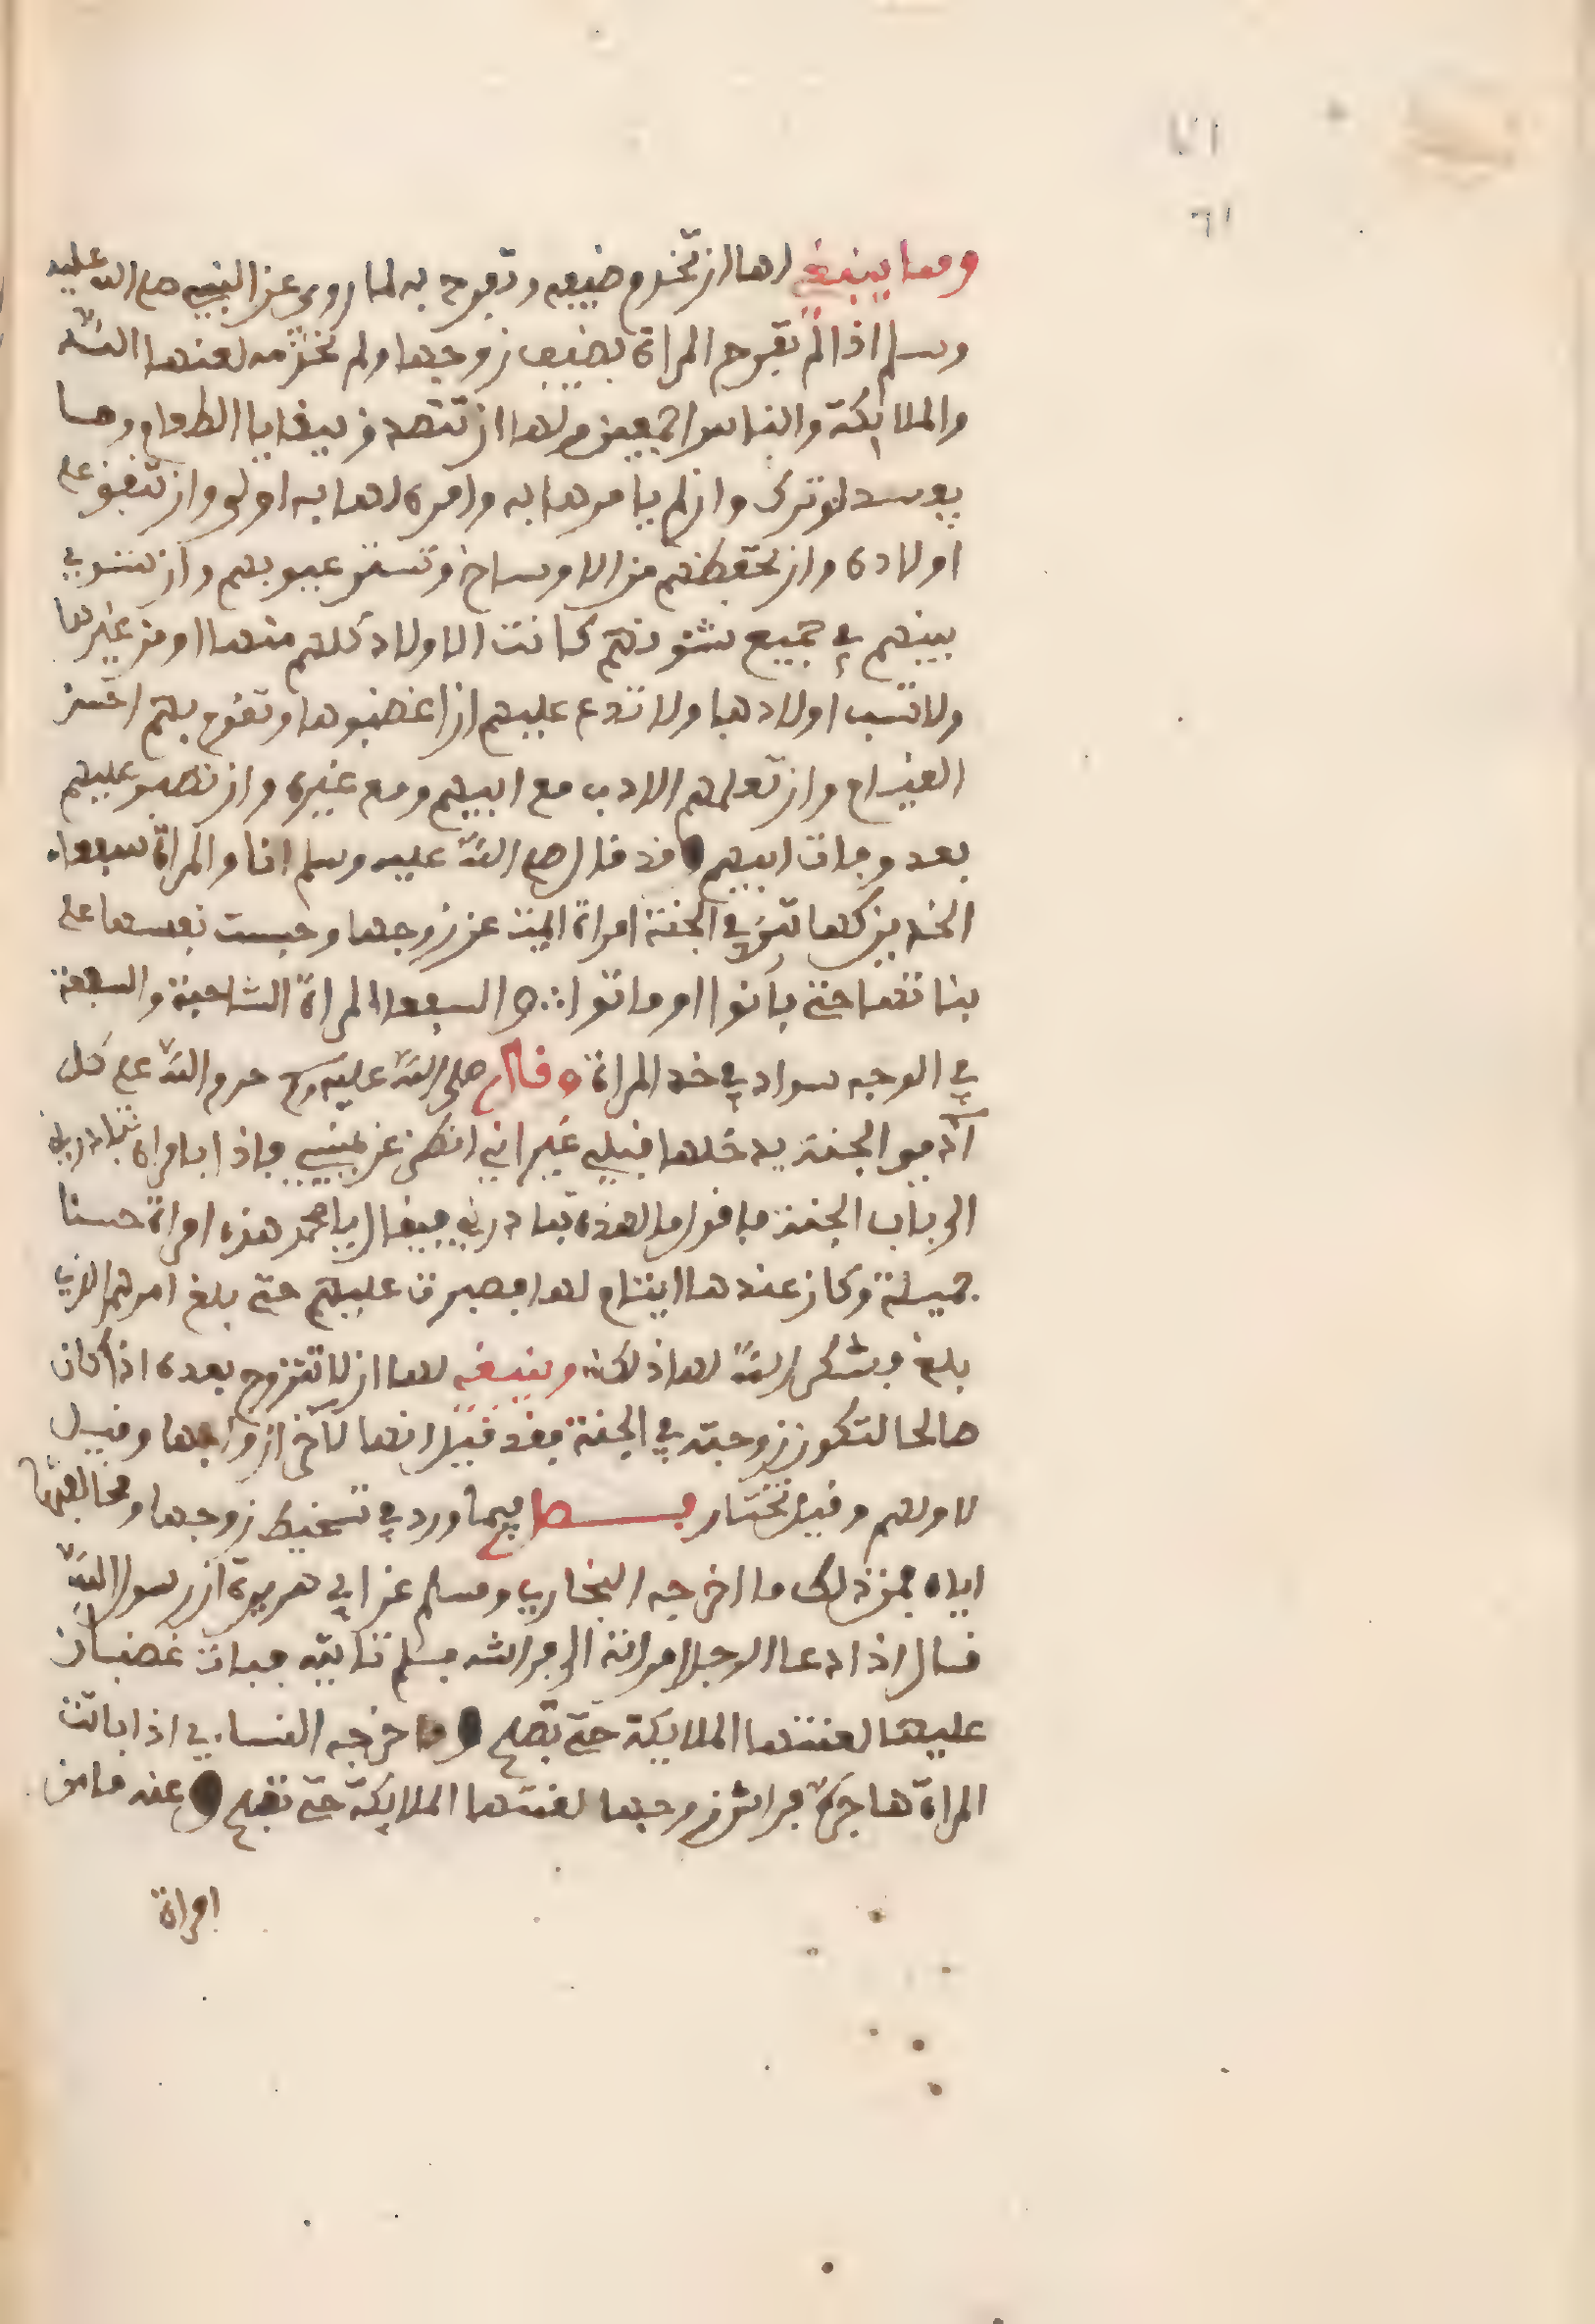 ٦١
ومما ينبغي لها ان تخدم ضيفه وتفرح به لما روي عن النبي صلى الله عليه
وسلم اذا لم تفرح المراة بضيف زوجها ولم تخدمه لعنها الله
والملائكة والناس اجمعين ولها ان تتصدق ببقايا الطعام وما
يفسد لو ترك وان لم يامرها به وامره لها به اولى وان تنفق على
اولاده وان تحفظهم من الاوساخ وتستر عيوبهم وان تسوي
بينهم في جميع شئونهم كانت الاولاد كلهم منها او من غيرها
ولا تسب اولادها ولا تدع عليهم ان اغضبوها وتقوم بهم احسن
القيام وان تعلمهم الادب مع ابيهم ومع غيره وان تصبر عليهم
بعد وفات ابيهم فقد قال صلى الله عليه وسلم انا والمراة سبعا
الخدين كهاتين في الجنة امراة ايمت عن زوجها وحبست نفسها على
بناتها حتى بانوا او ماتوا والسبعا المراة الشاحبة والسبعة
في الوجه سواد في خد المراة وقال صلى الله عليه وسلم حرم الله على كل
آدمي الجنة يدخلها قبلي غير اني انظر عن يميني فاذا بامراة تبادرني
الى باب الجنة فاقول ما لهذه تبادرني فيقال يا محمد هذه امراة حسنا
جميلة وكان عندها ايتام لها فصبرت عليهم حتى بلغ امرهم الذي
بلغ فشكر الله لها ذلك وينبغي لها ان لا تتزوج بعده اذا كان
صالحا لتكون زوجته في الجنة فقد قيل انها لآخر ازواجها وقيل
لاولهم وقيل تختار فصل فيما ورد في تسخيط زوجها ومخالفتها
اياه فمن ذلك ما اخرجه البخاري ومسلم عن ابي هريرة ان رسول الله
قال اذا دعا الرجل امراته الى فراشه فلم تاتيه فبات غضبان
عليها لعنتها الملائكة حتى تصبح وما خرجه النساي اذا باتت
المراة هاجرة فراش زوجها لعنتها الملائكة حتى تصبح وعنه ما من
امراة